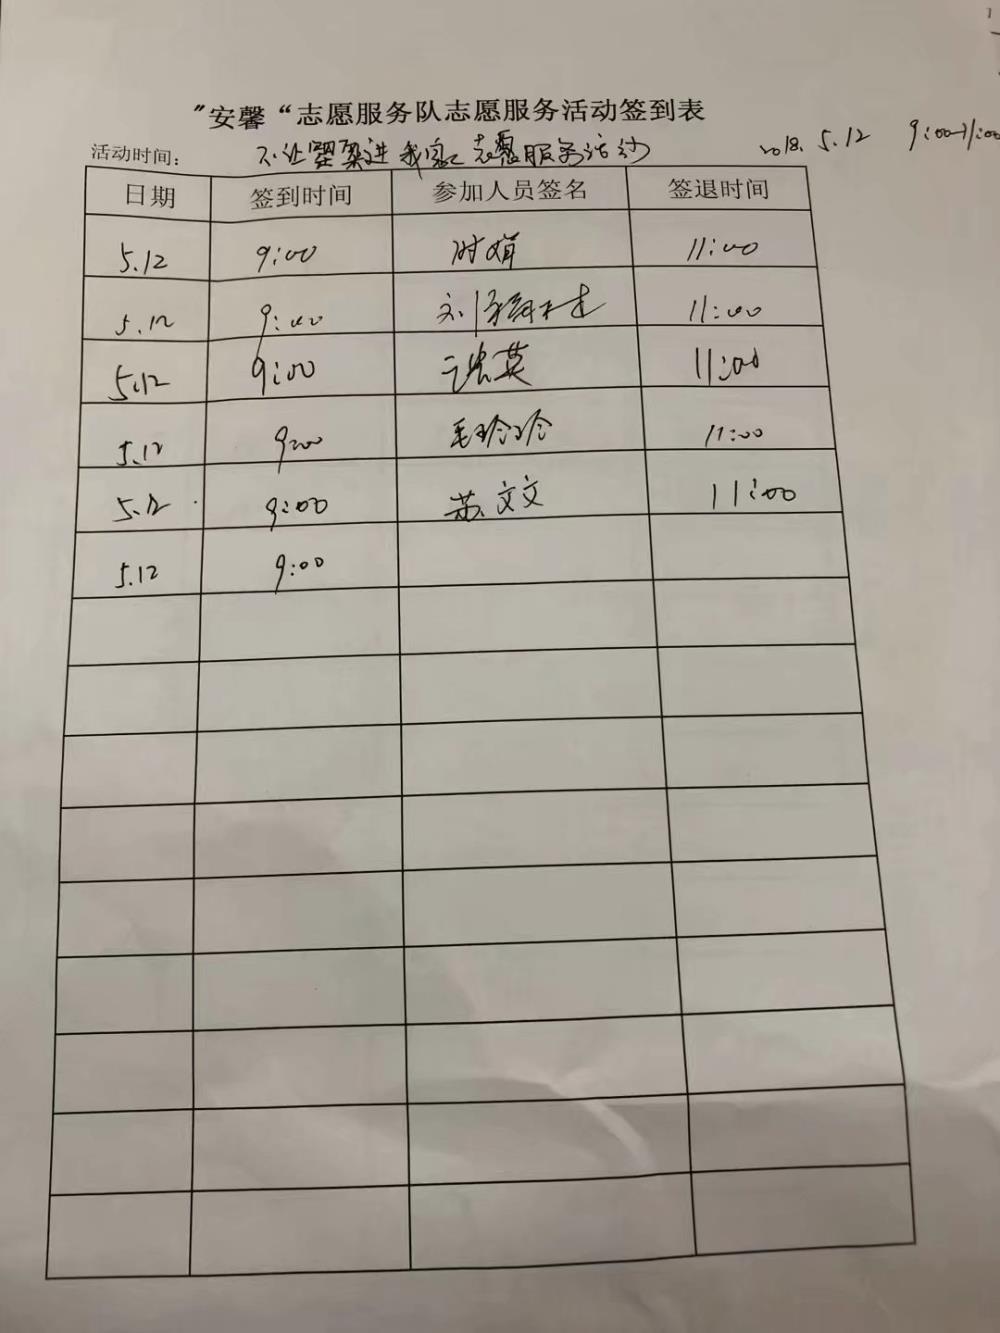 "安馨"志愿服务队志愿服务活动签到表
活动时间： 不让罂粟进我家志愿服务活动 2018.5.12 9:00-11:00
日期 签到时间 参加人员签名 签退时间
5.12 9:00 时娟 11:00
5.12 9:00 刘 11:00
5.12 9:00 英 11:00
5.12 9:00 毛玲玲 11:00
5.12 9:00 苏文文 11:00
5.12 9:00